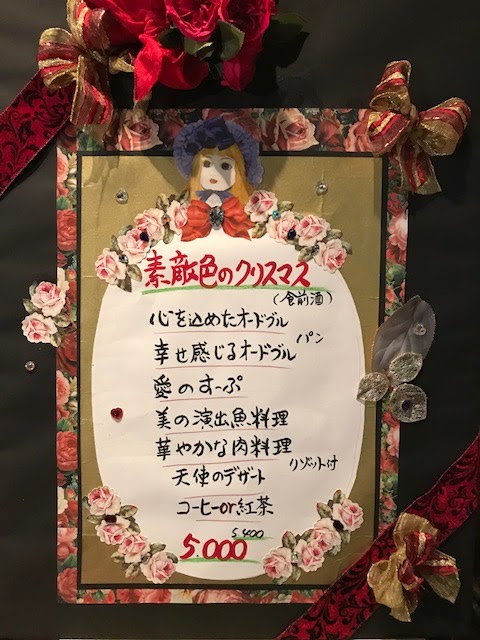 素敵色のクリスマス
(食前酒)
心を込めたオードブル
パン
幸せ感じるオードブル
愛のすーぷ
美の演出魚料理
華やかな肉料理
リゾット付
天使のデザート
コーヒーor紅茶
5,400
5.000